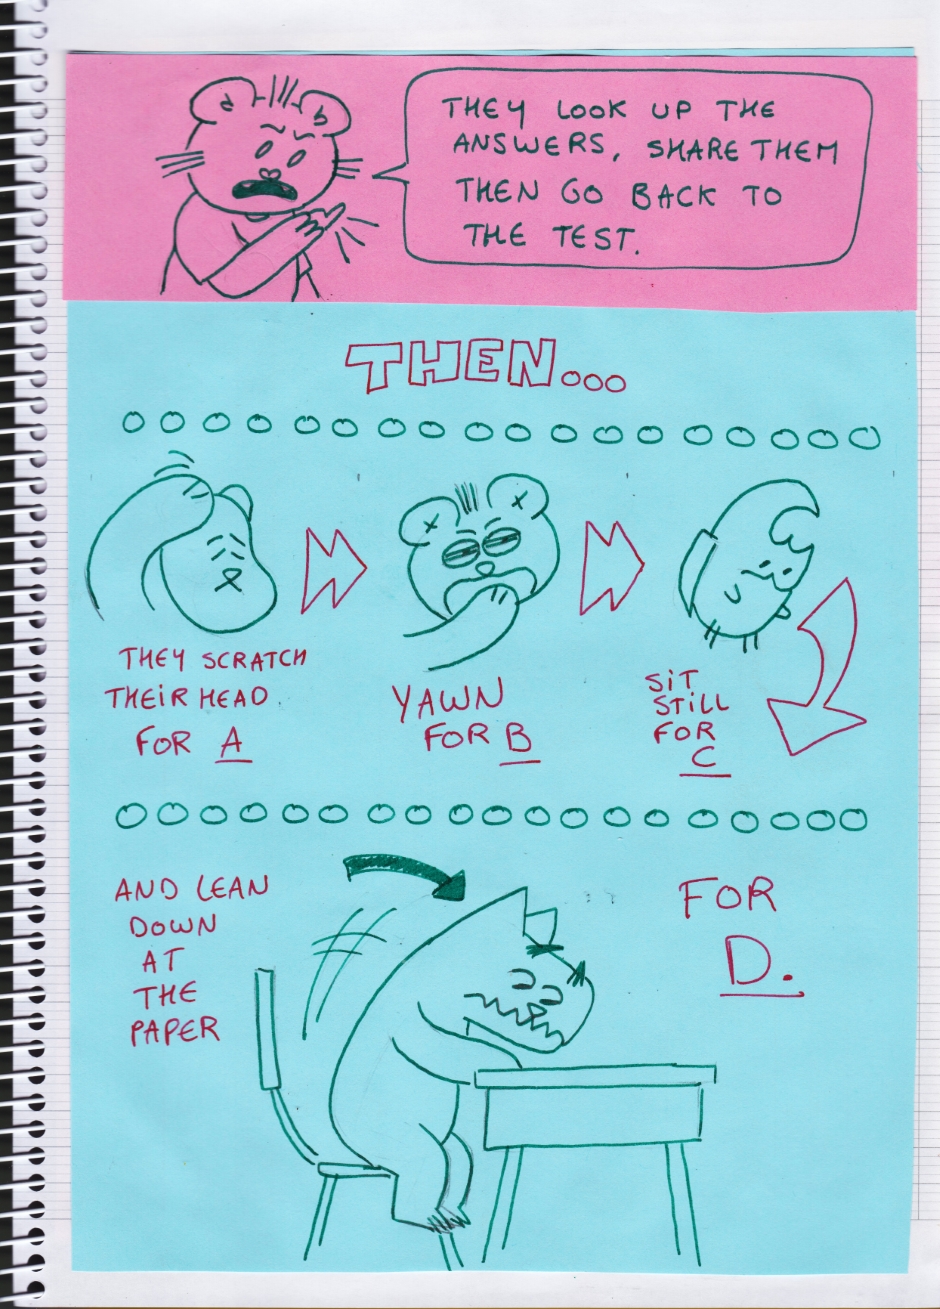 THEY LOOK UP THE
ANSWERS, SHARE THEM
THEN GO BACK TO
THE TEST.
THEN...
THEY SCRATCH
THEIR HEAD
FOR A
YAWN
FOR B
SIT
STILL
FOR
C
AND LEAN
DOWN
AT
THE
PAPER
FOR
D.